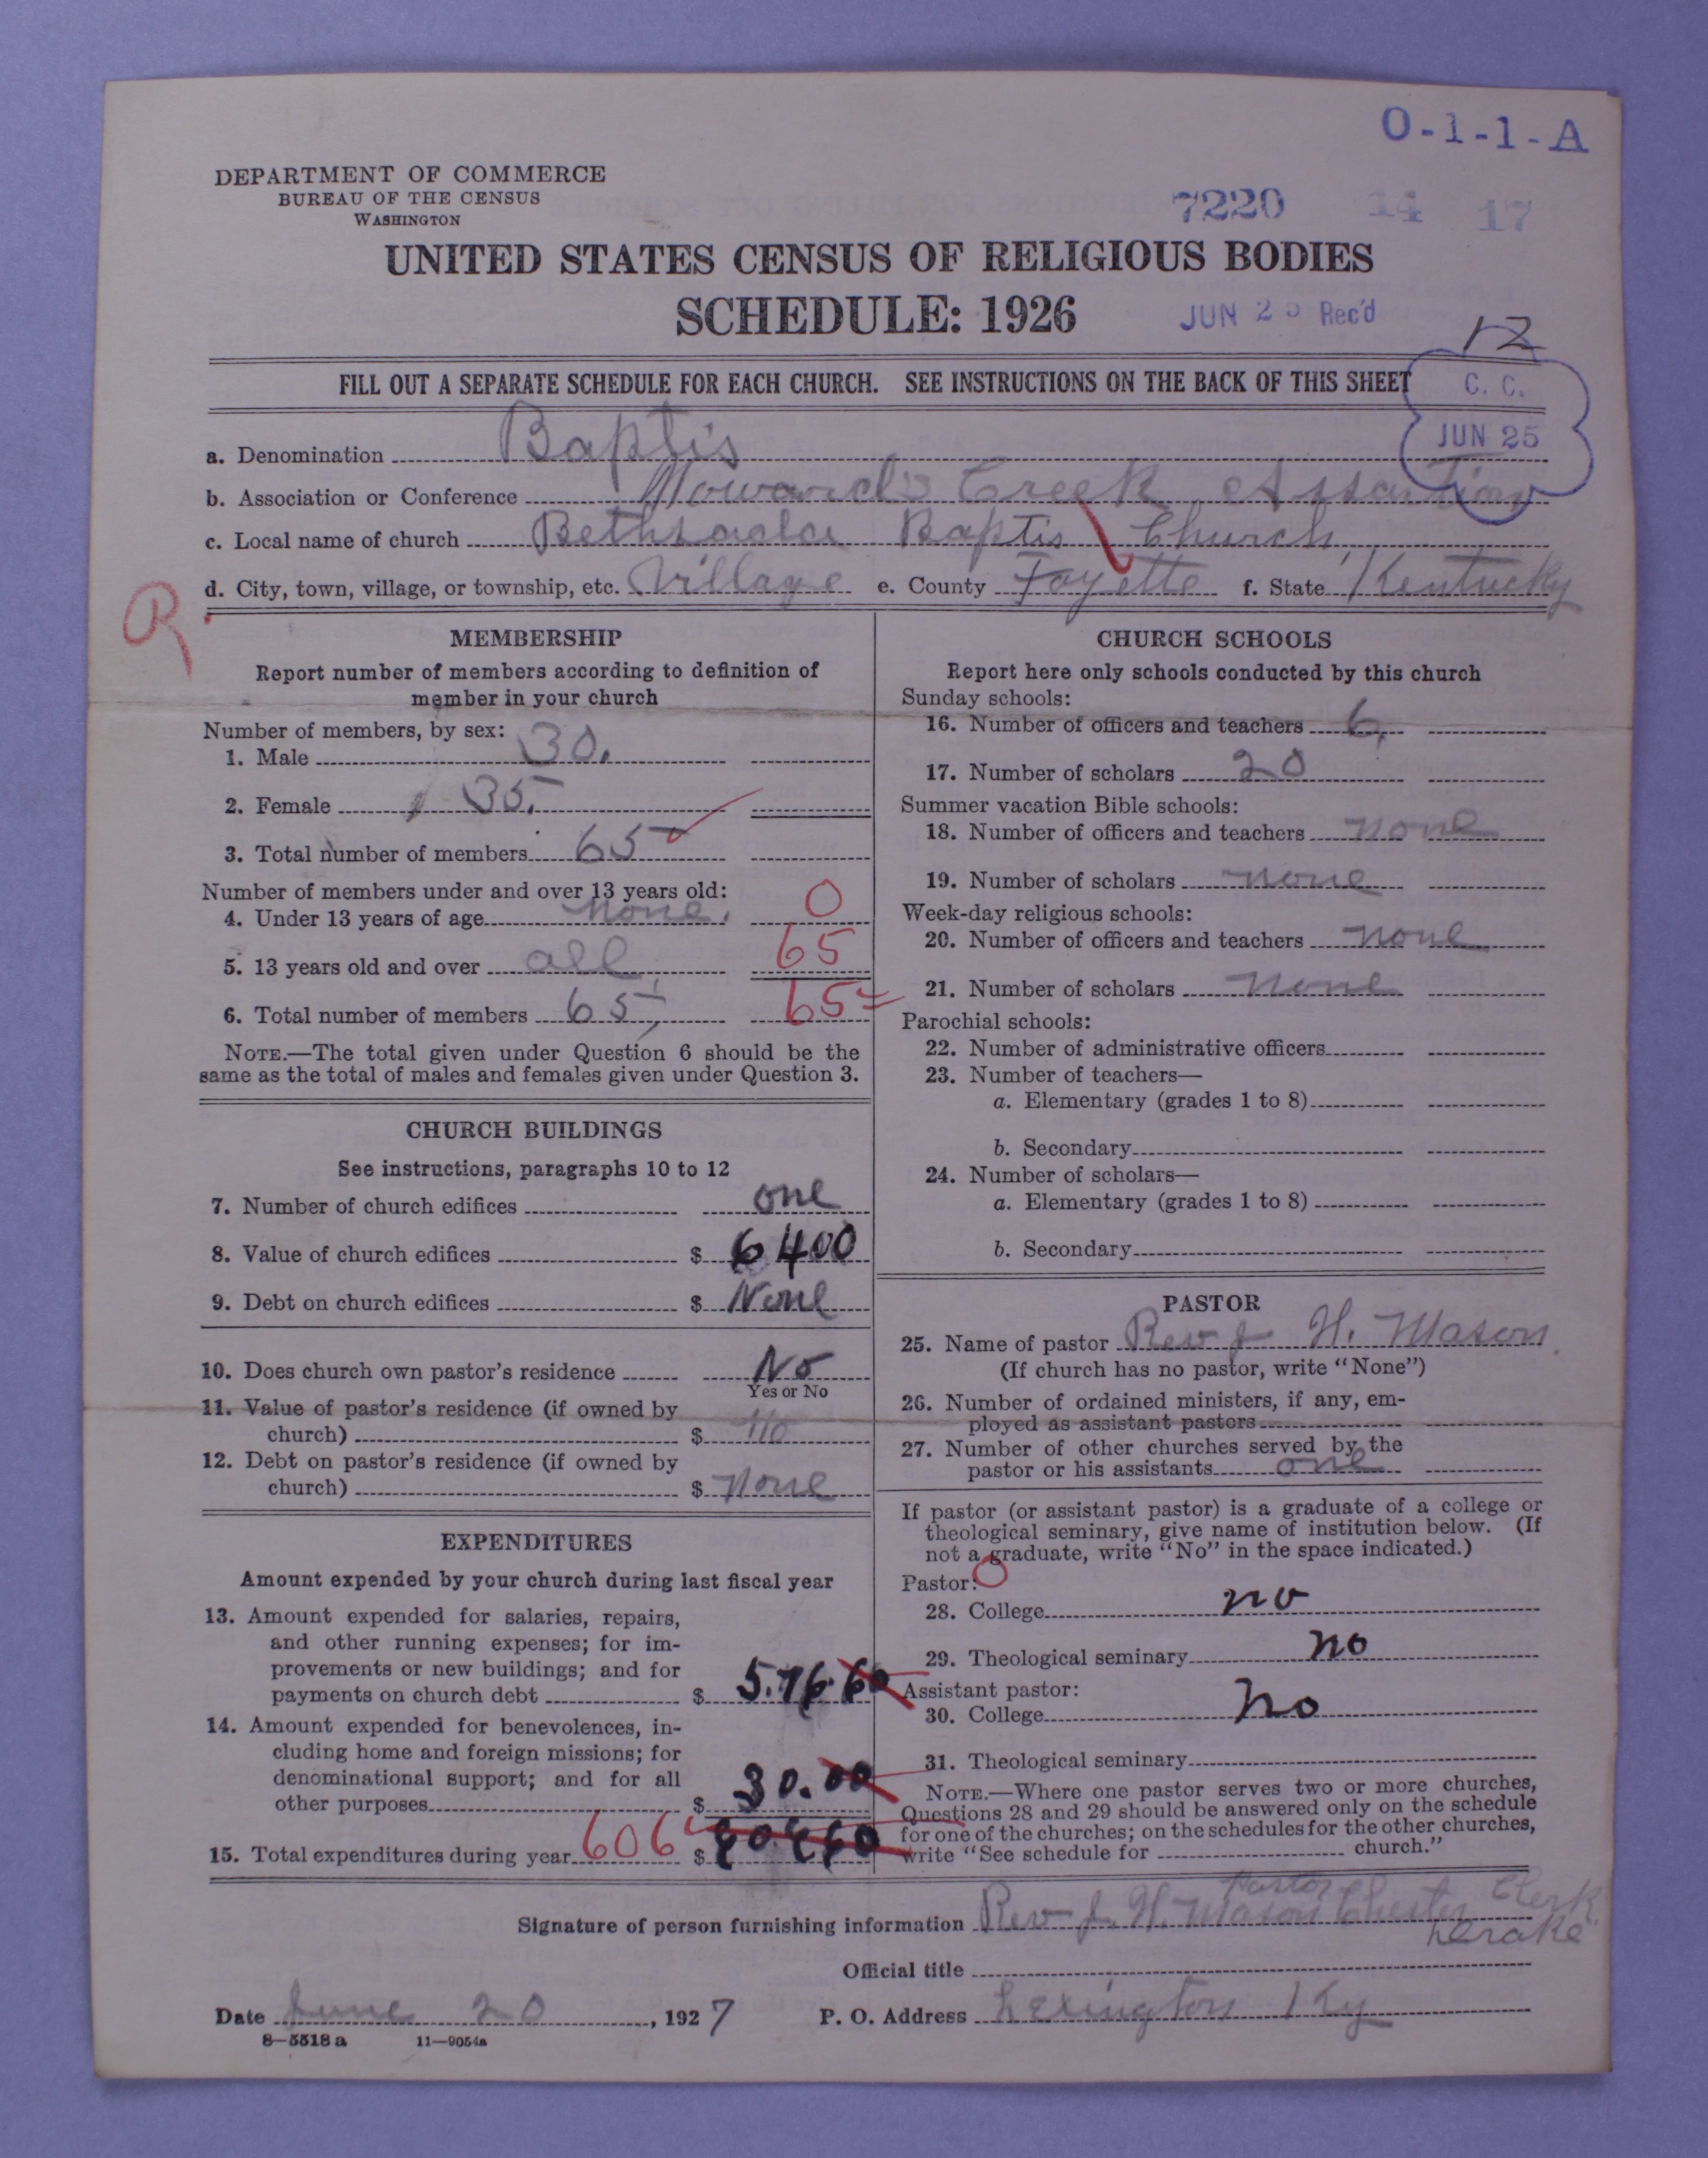 O-1-1-A
DEPARTMENT OF COMMERCE
BUREAU OF THE CENSUS
WASHINGTON
7220 14 17
UNITED STATES CENSUS OF RELIGIOUS BODIES
SCHEDULE: 1926
JUN 25 Rec'd
12
FILL OUT A SEPARATE SCHEDULE FOR EACH CHURCH. SEE INSTRUCTIONS ON THE BACK OF THIS SHEET
C. C.
JUN 25
a. Denomination Baptis
b. Association or Conference Howard's Creek
c. Local name of church Bethsada Baptis Church
d. City, town, village, or township, etc. Village e. County Fayette f. State Kentucky
R
MEMBERSHIP
Report number of members according to definition of
member in your church
Number of members, by sex:
1. Male 30.
2. Female 35.
3. Total number of members 65
Number of members under and over 13 years old:
4. Under 13 years of age none. 0
5. 13 years old and over all 65
6. Total number of members 65 65
NOTE.—The total given under Question 6 should be the
same as the total of males and females given under Question 3.
CHURCH BUILDINGS
See instructions, paragraphs 10 to 12
7. Number of church edifices one
8. Value of church edifices $ 6400
9. Debt on church edifices $ None
10. Does church own pastor's residence No
Yes or No
11. Value of pastor's residence (if owned by
church) $ no
12. Debt on pastor's residence (if owned by
church) $ None
EXPENDITURES
Amount expended by your church during last fiscal year
13. Amount expended for salaries, repairs,
and other running expenses; for im-
provements or new buildings; and for
payments on church debt $ 5.76.60
14. Amount expended for benevolences, in-
cluding home and foreign missions; for
denominational support; and for all
other purposes $ 30.00
15. Total expenditures during year 606 $
CHURCH SCHOOLS
Report here only schools conducted by this church
Sunday schools:
16. Number of officers and teachers 6,
17. Number of scholars 20
Summer vacation Bible schools:
18. Number of officers and teachers none
19. Number of scholars none
Week-day religious schools:
20. Number of officers and teachers none
21. Number of scholars none
Parochial schools:
22. Number of administrative officers
23. Number of teachers—
a. Elementary (grades 1 to 8)
b. Secondary
24. Number of scholars—
a. Elementary (grades 1 to 8)
b. Secondary
PASTOR
25. Name of pastor Rev J H. Mason
(If church has no pastor, write "None")
26. Number of ordained ministers, if any, em-
ployed as assistant pastors
27. Number of other churches served by the
pastor or his assistants one
If pastor (or assistant pastor) is a graduate of a college or
theological seminary, give name of institution below. (If
not a graduate, write "No" in the space indicated.)
Pastor: 0
28. College no
29. Theological seminary no
Assistant pastor:
30. College No
31. Theological seminary
NOTE.—Where one pastor serves two or more churches,
Questions 28 and 29 should be answered only on the schedule
for one of the churches; on the schedules for the other churches,
write "See schedule for church."
Pastor Clerk
Signature of person furnishing information Rev J. H. Mason Chester
Drake
Official title
Date June 20, 1927 P. O. Address Lexington Ky
8—5518 a 11—9054a